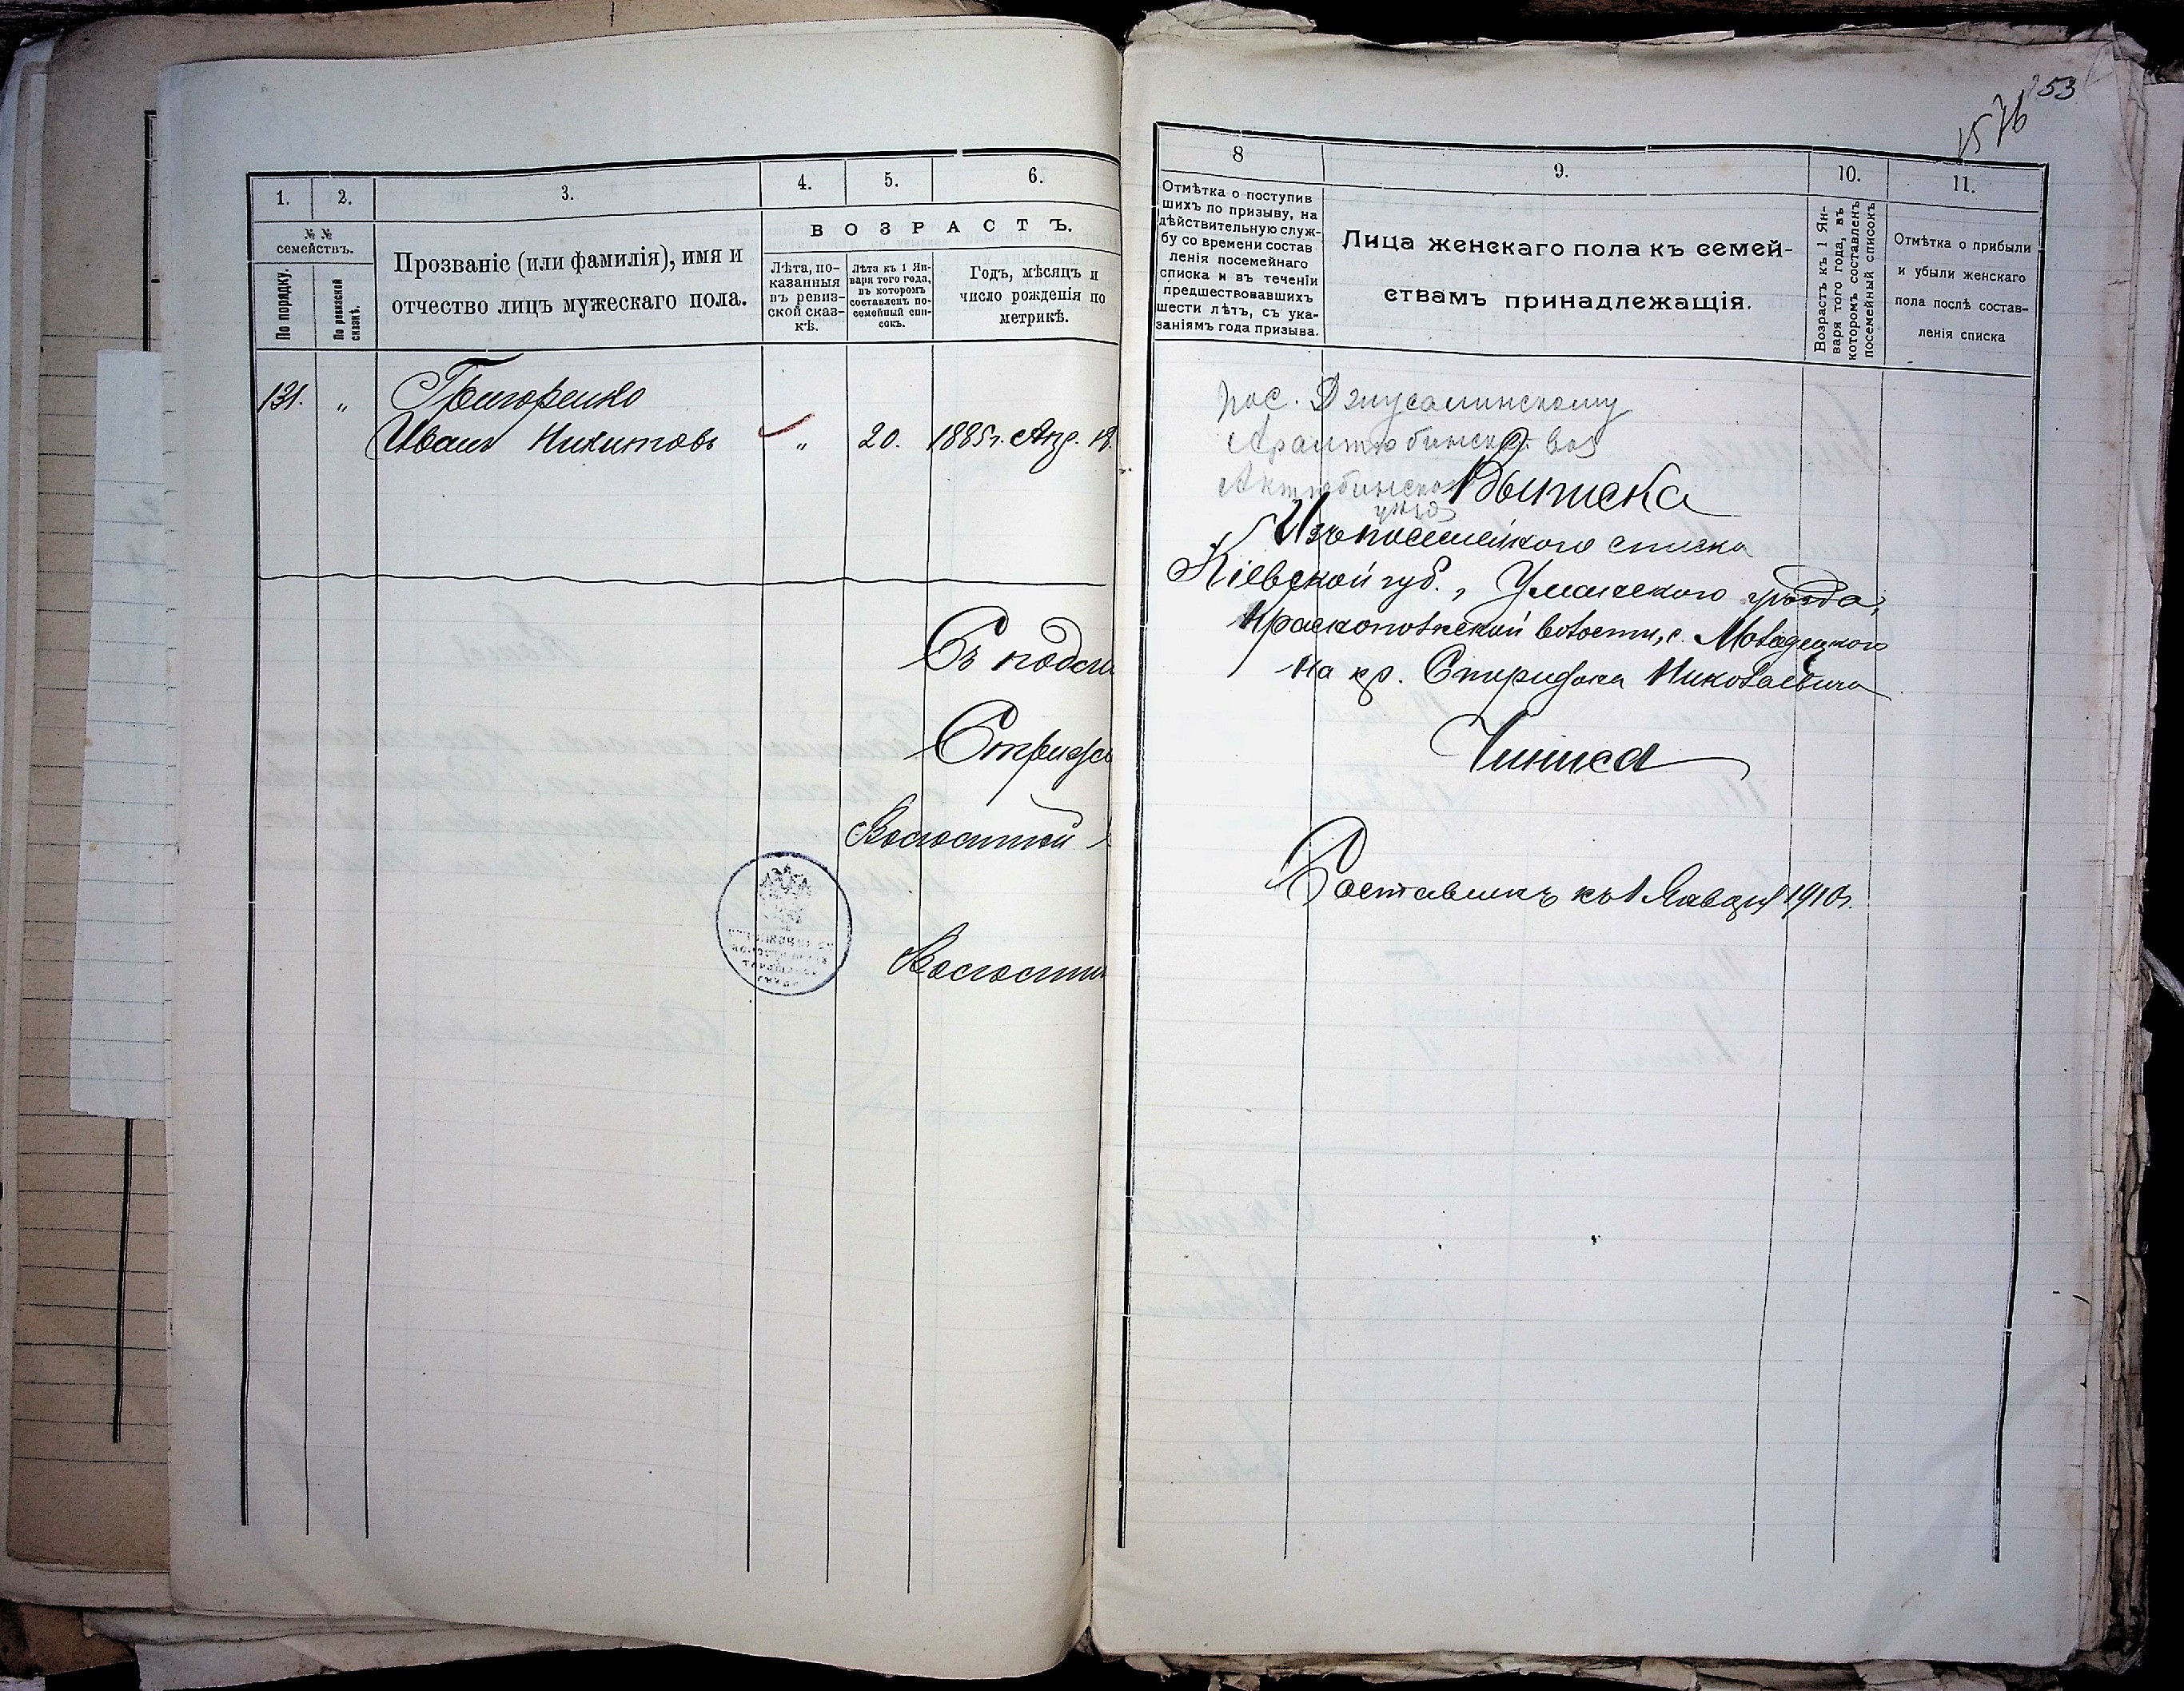 1.
2.
3.
4.
5.
6.
№ №
семействъ.
По порядку.
По ревизской
сказкѣ.
Прозваніе (или фамилія), имя и
отчество лицъ мужескаго пола.
ВОЗРАСТЪ.
Лѣта, по-
казанныя
въ ревиз-
ской сказ-
кѣ.
Лѣта къ 1 Ян-
варя того года,
въ которомъ
составленъ по-
семейный спи-
сокъ.
Годъ, мѣсяцъ и
число рожденія по
метрикѣ.
131. „ Григоренко
Иванъ Никитовъ „ 20. 1885г. Апр. 18.
Съ подли
Спиридо
Волостной
Волостн
53
1576
8
9.
10.
11.
Отмѣтка о поступив
шихъ по призыву, на
дѣйствительную служ-
бу со времени состав
ленія посемейнаго
списка и въ теченіи
предшествовавшихъ
шести лѣтъ, съ ука-
заніямъ года призыва.
Лица женскаго пола къ семей-
ствамъ принадлежащія.
Возрастъ къ 1 Ян-
варя того года, въ
которомъ составленъ
посемейный списокъ
Отмѣтка о прибыли
и убыли женскаго
пола послѣ состав-
ленія списка
пос. Джусалинскому
Араитюбинской вол
Актюбинскаго
уѣзд
Выписка
Изъ посемейного списка
Кіевской губ., Уманского уѣзда,
Краснополкской волости, с. Молодецкого
На кр. Спиридона Николаевича
Чиниса
Составленъ къ 1 Января 1910г.